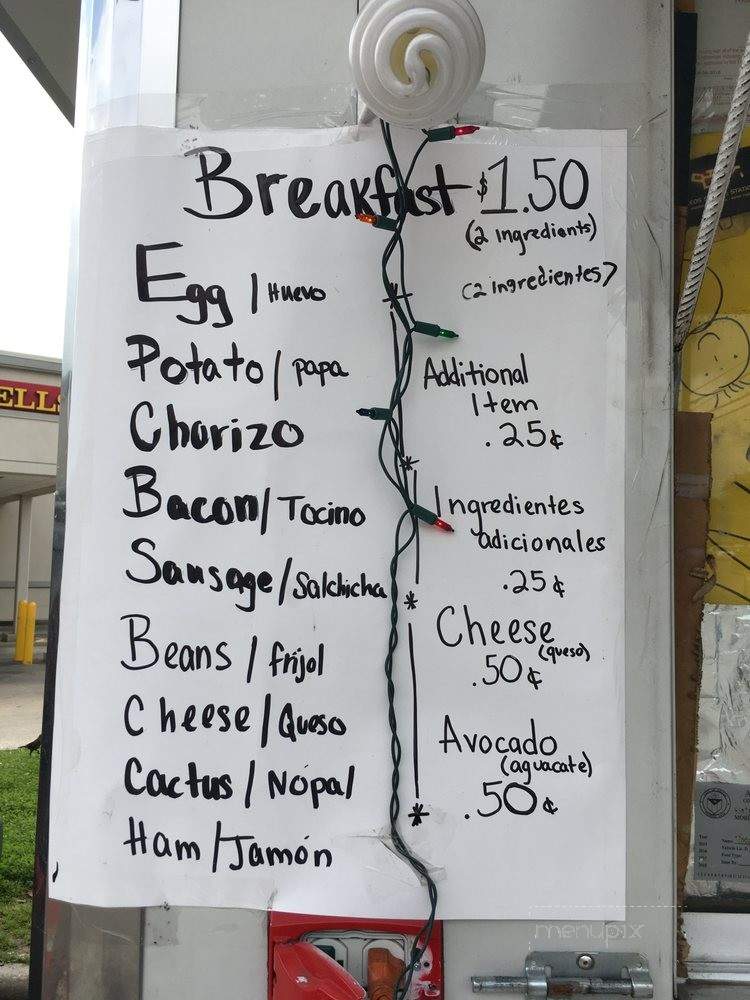 Breakfast $1.50
(2 Ingredients)
(2 ingredientes)
Egg / Huevo
Potato / papa
Chorizo
Bacon / Tocino
Sausage / Salchicha
Beans / frijol
Cheese / Queso
Cactus / Nopal
Ham / Jamón
Additional
Item
.25¢
Ingredientes
adicionales
.25¢
Cheese
(queso)
.50¢
Avocado
(aguacate)
.50¢
ELLS
menupix